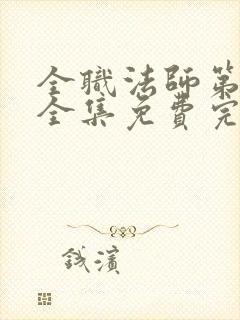 全職法師第
全集免費完
錢濱